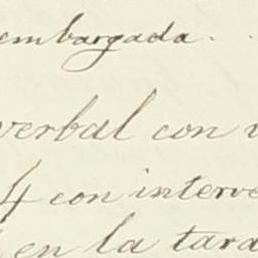 embargada.
verbal con
4 con interve
en la tard